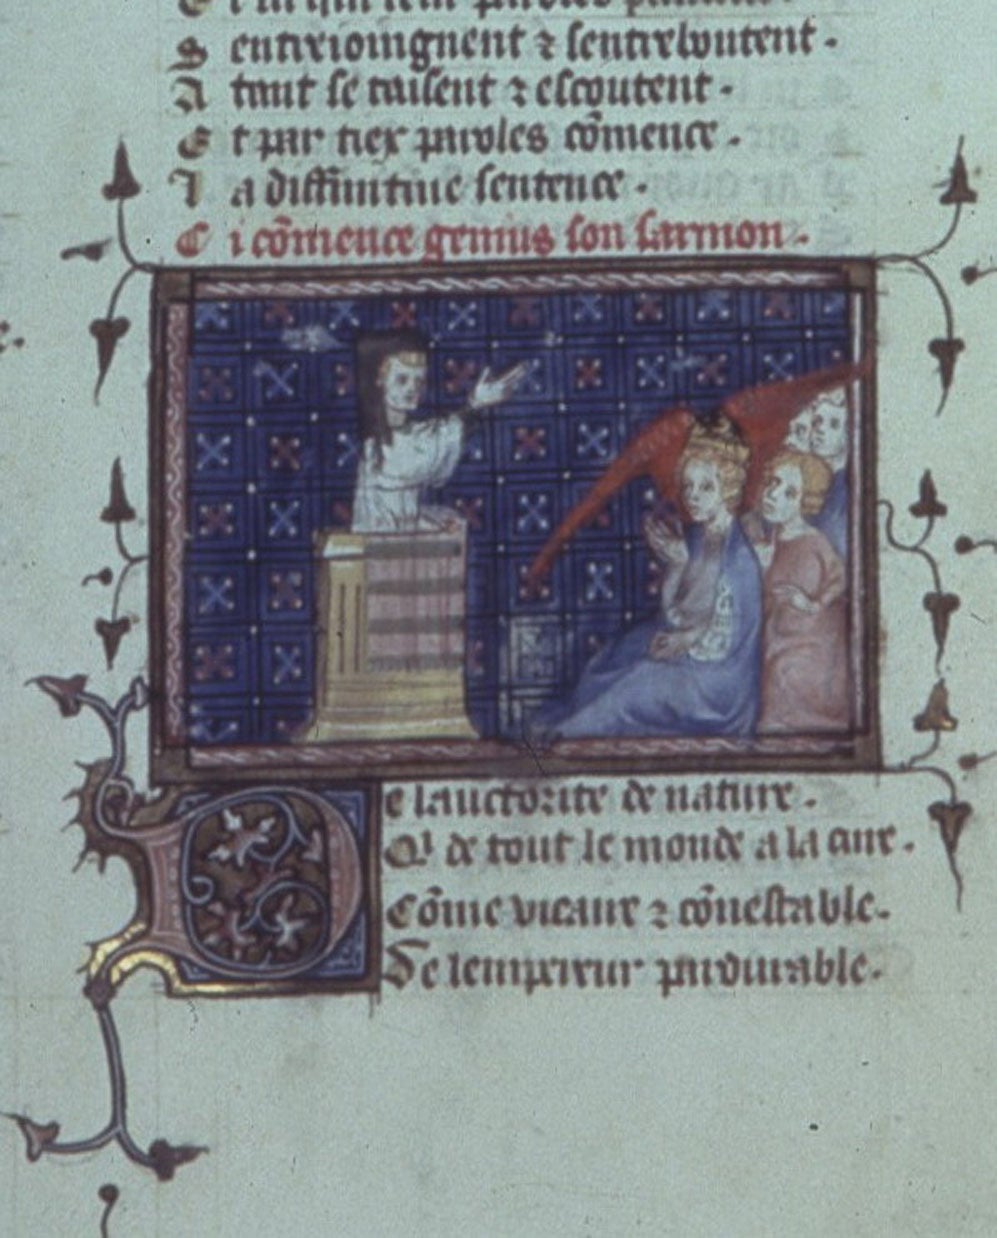 S entreioingnent ⁊ sentreboutent.
A tant se taisent ⁊ escoutent.
E t par tiex paroles cōmence.
L a diffinitiue sentence.
C i cōmence genius son sarmon.
De lauctorite de nature.
Qi de tout le monde a la cure.
Cōme vicaire ⁊ cōnestable.
De lempereur pardurable.